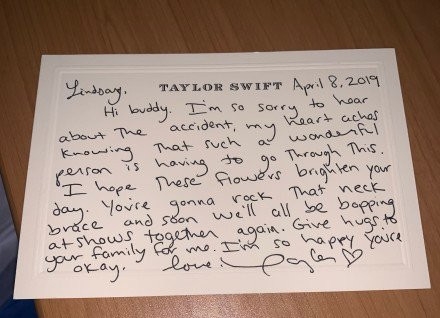 Lindsay, TAYLOR SWIFT April 8, 2019
Hi buddy. I'm so sorry to hear
about The accident, my heart aches
knowing That such a wonderful
person is having to go Through This.
I hope These flowers brighten your
day. You're gonna rock That neck
brace and soon we'll all be bopping
at shows together again. Give hugs to
your family for me. I'm so happy you're
okay. love, Taylor ♡